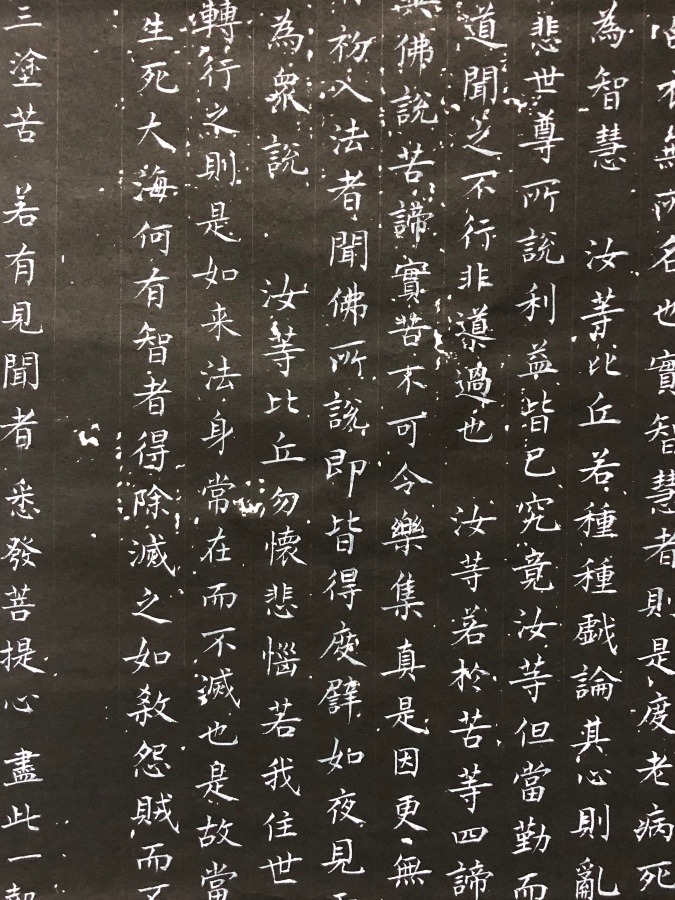 無所名也實智慧者則是度老病死
為智慧 汝等比丘若種種戲論其心則亂
悲世尊所說利益皆已究竟汝等但當勤而
道聞之不行非導過也 汝等若於苦等四諦
佛說苦諦實苦不可令樂集真是因更無
初入法者聞佛所說即皆得度譬如夜見
為衆說 汝等比丘勿懷悲惱若我住世
轉行之則是如来法身常在而不滅也是故當
生死大海何有智者得除滅之如殺怨賊而不
三塗苦 若有見聞者 悉發菩提心 盡此一